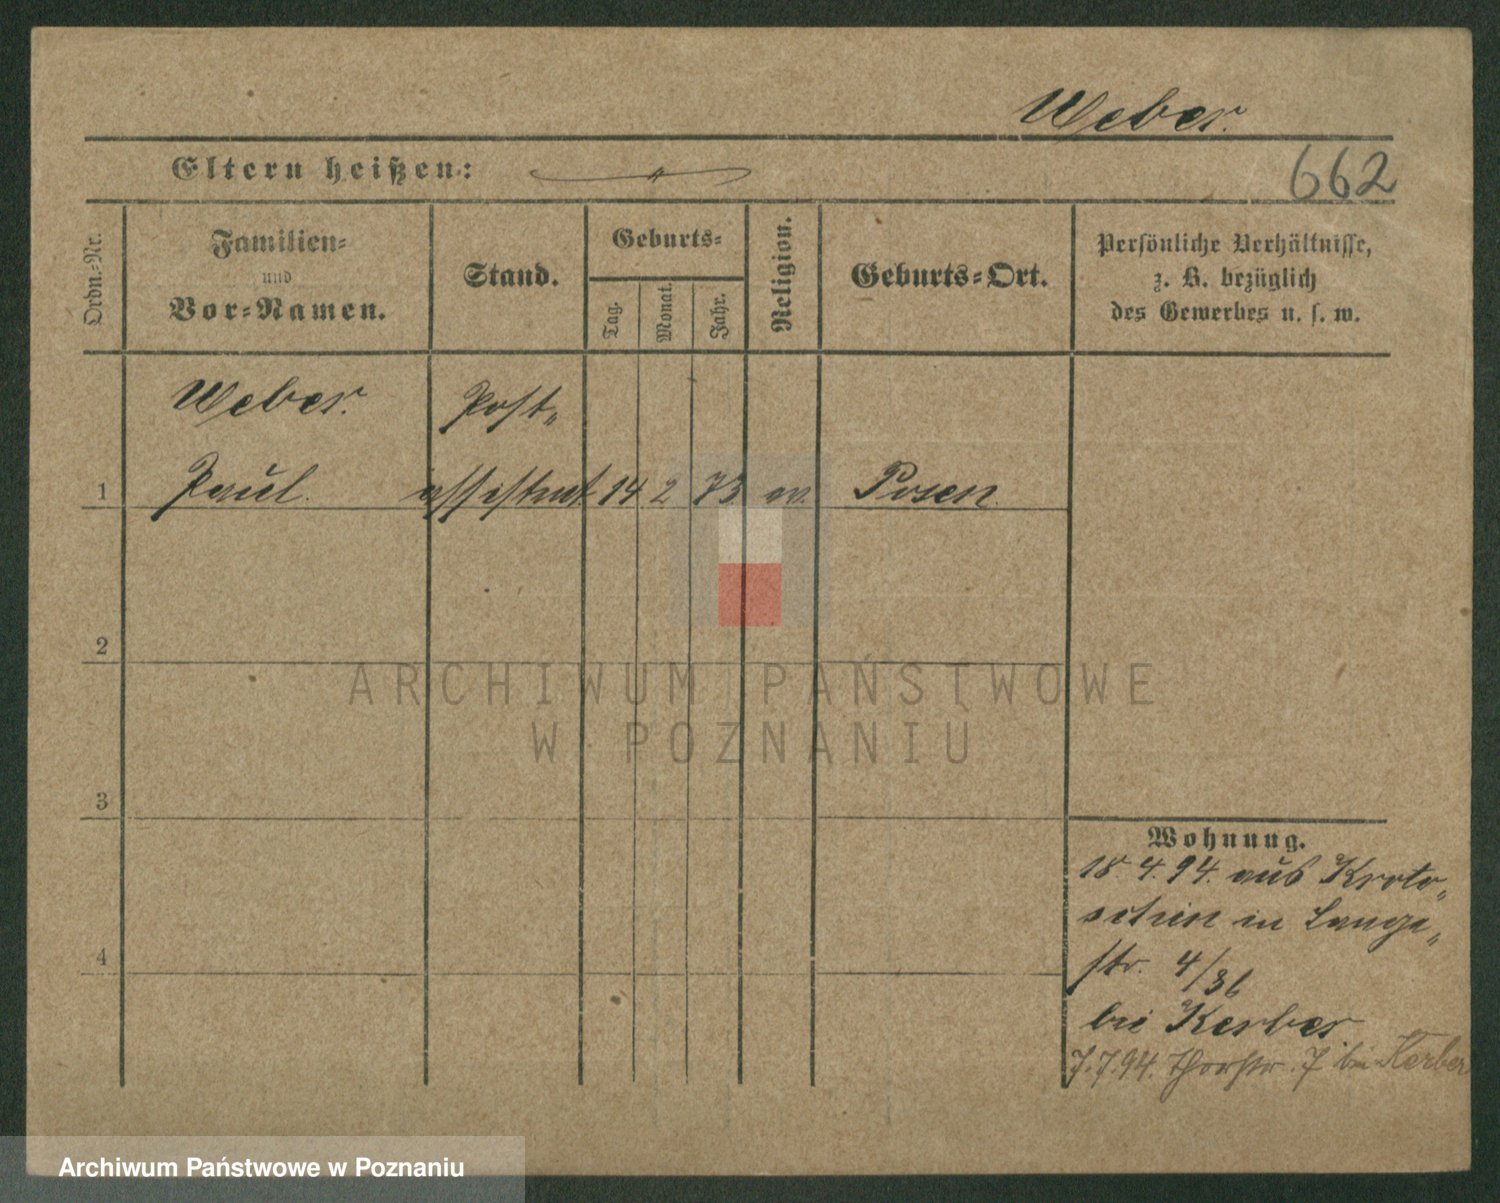 Weber.
Eltern heißen: "
662
Ordn.-Nr.
Familien-
und
Vor-Namen.
Stand.
Geburts-
Tag.
Monat.
Jahr.
Religion.
Geburts-Ort.
Persönliche Verhältnisse,
z. B. bezüglich
des Gewerbes u. s. w.
Weber. Post-
1 Paul. assistent 14 2 73 ev. Posen
2
3
4
Wohnung.
18. 4. 94. aus Kroto-
schin in Lange-
str. 4/36
bei Kerber.
7.7.94. Thorstr. 7 bei Kerber
ARCHIWUM PAŃSTWOWE
W POZNANIU
Archiwum Państwowe w Poznaniu